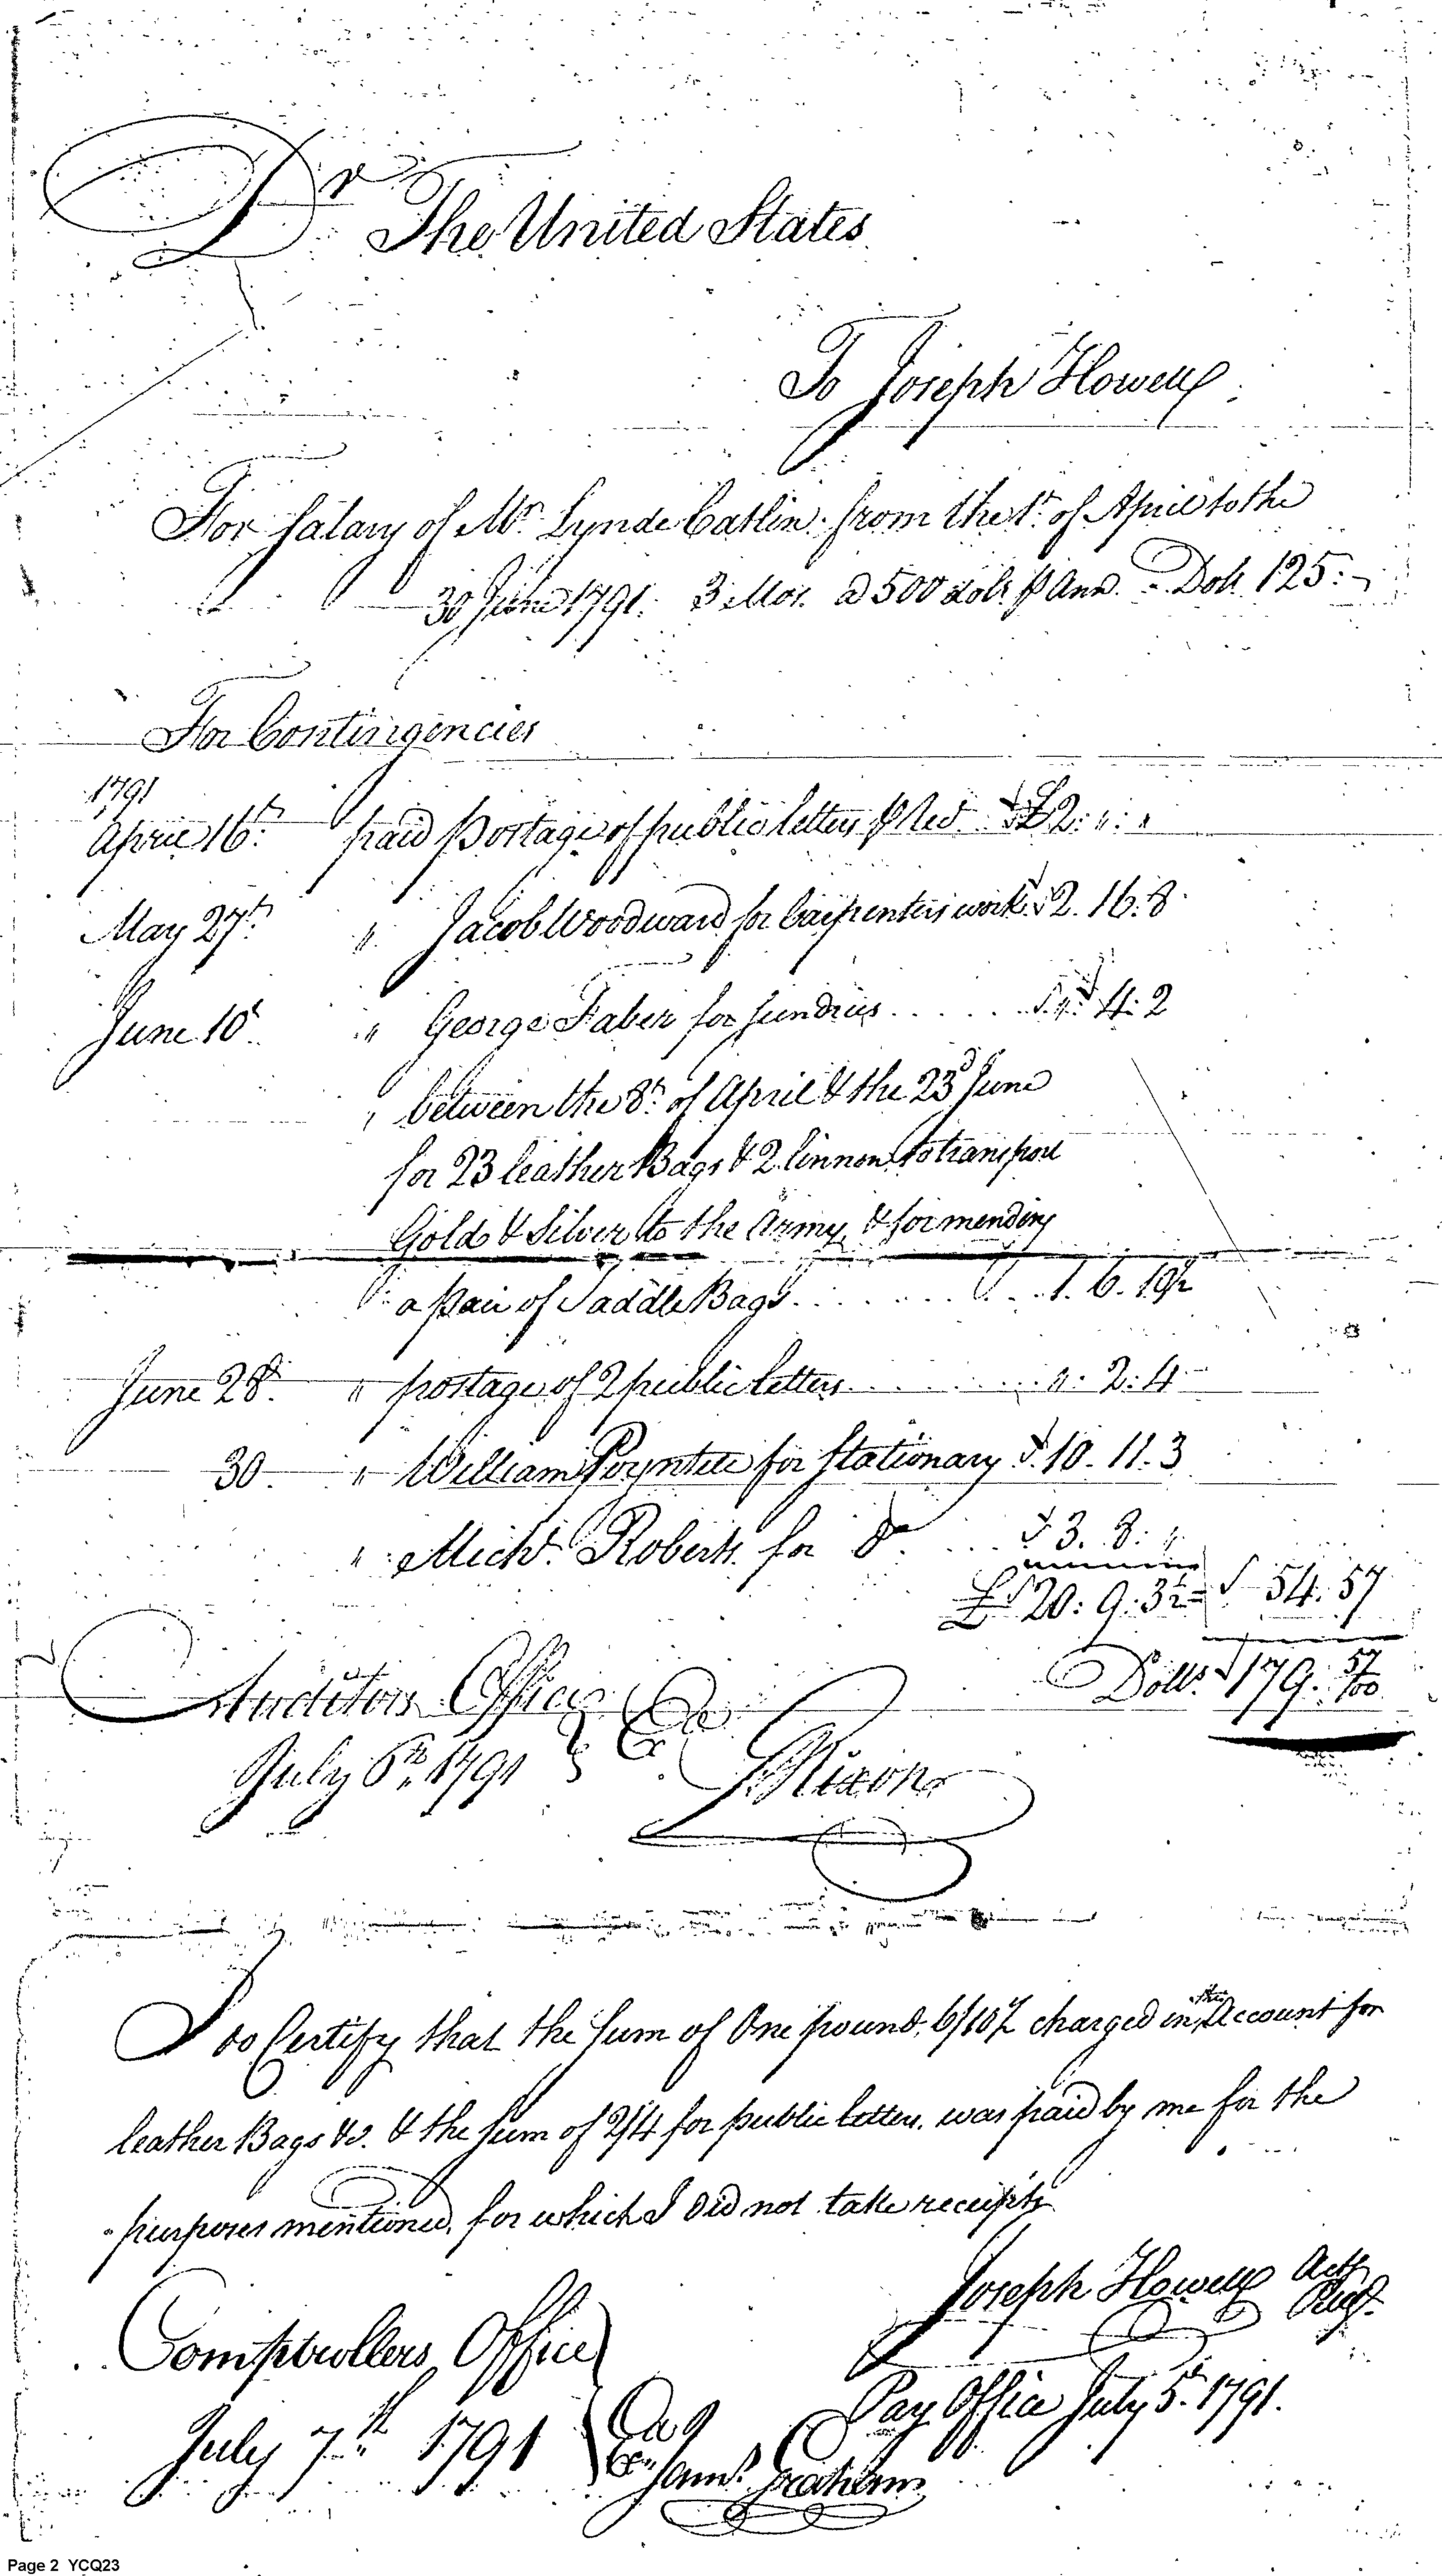 Dr The United States
To Joseph Howell
For Salary of Mr. Lynde Catlin from the 1st. of April to the
30 June 1791. 3 Mos. @ 500 dols. ⅌ Ann. - Dols. 125:-
For Contingencies
1791
April 16th. paid Postage of public letters ⅌ Rec. £2: ": "
May 27th. " Jacob Woodward for Carpenters work 2. 16. 8
June 10 " George Faber for Sundries . . . . . ": 4: 2
" between the 8th. of April & the 23d June
for 23 leather Bags & 2 linnon to transport
Gold & Silver to the Army, & for mending
a pair of Saddle Bags . . . . . . . . 1. 6. 10½
June 28. " postage of 2 public letters . . . . . . ": 2: 4
30 " William Poyntell for Stationary 10. 11. 3
" Michl. Roberts for do. . . . 3. 8: "
£ 20: 9: 3½ = 54. 57
Dolls. 179. 57/100
Auditors Office
July 6th. 1791 } Ex. Nixon
I do Certify that the Sum of One pound, 6/10½ charged in this Account for
leather Bags &c. & the Sum of 2/4 for public letters, was paid by me for the
purposes mentioned, for which I did not take receipts
Joseph Howell Actg
Comptrollers Office
Pay Office July 5. 1791.
July 7th 1791 Jams. Graham
Page 2 YCQ23